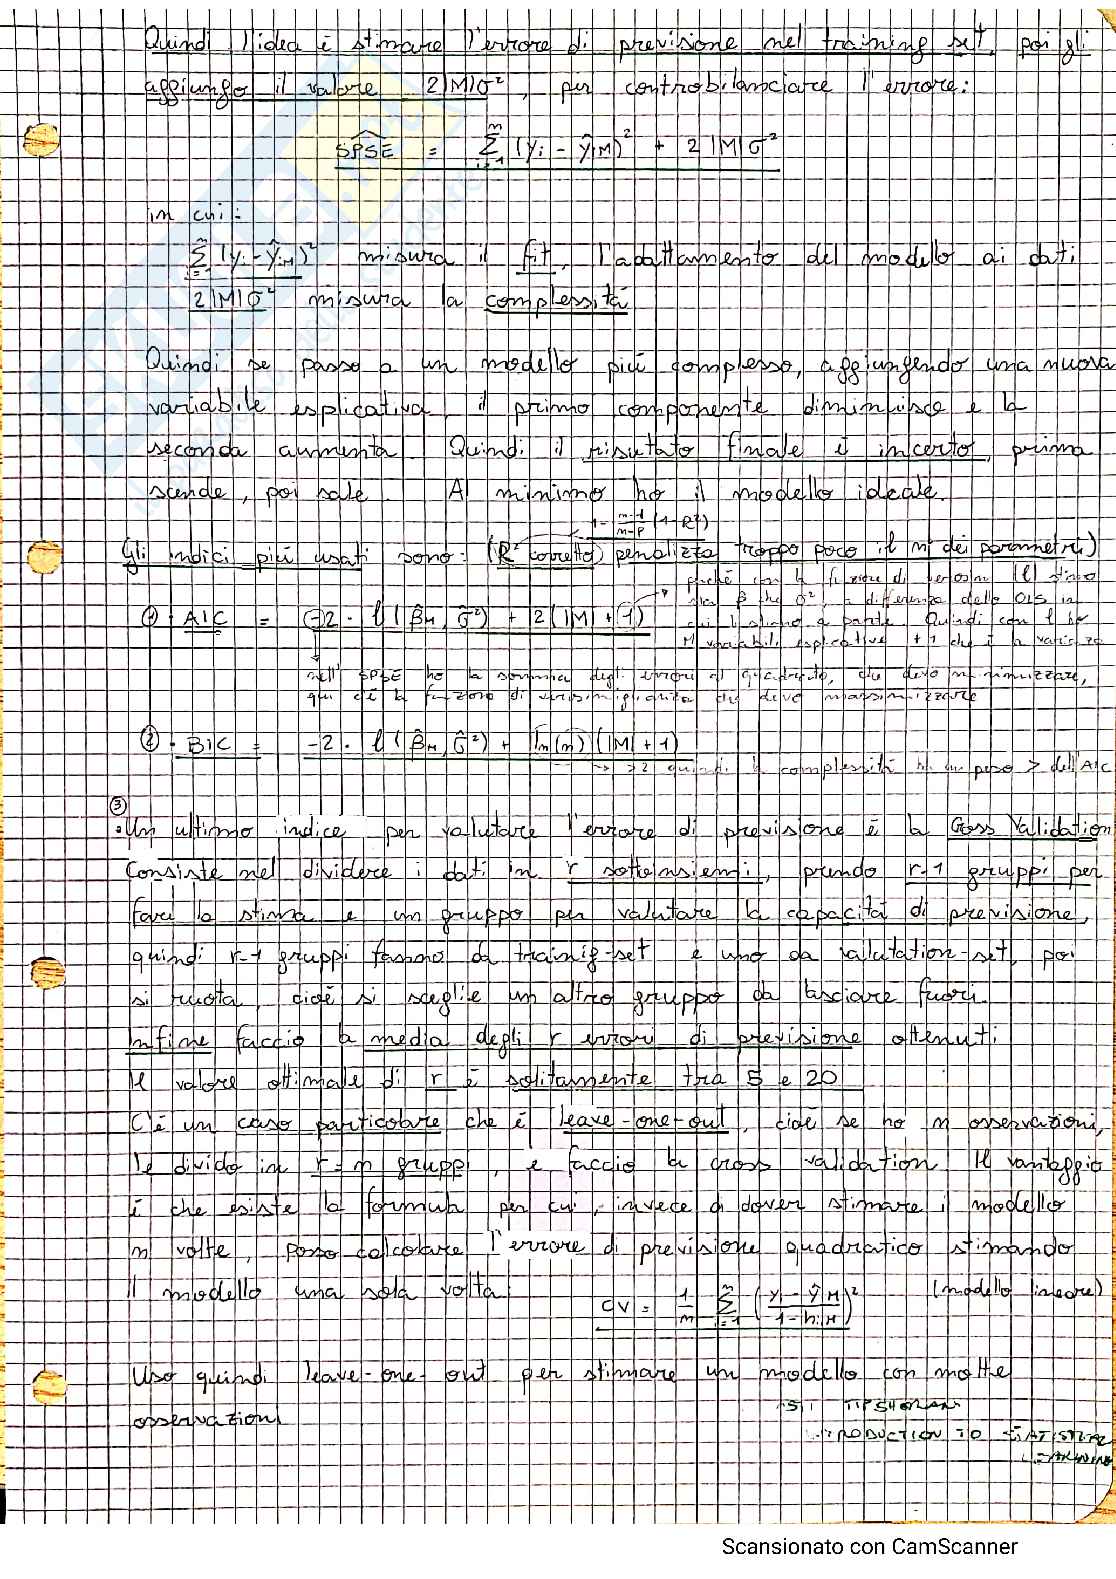 Quindi l'idea è stimare l'errore di previsione nel training set, poi gli
aggiungo il valore 2|M|σ², per controbilanciare l'errore:
SPSE^ = Σ(i=1 → n) (yi - ŷiM)² + 2|M|σ²
in cui:
Σ(i=1 → n) (yi - ŷiM)² misura il fit, l'adattamento del modello ai dati
2|M|σ² misura la complessità
Quindi se passo a un modello più complesso, aggiungendo una nuova
variabile esplicativa, il primo componente diminuisce e la
seconda aumenta. Quindi il risultato finale è incerto, prima
scende, poi sale. Al minimo ho il modello ideale.
1 - n-1/n-p (1-R²)
Gli indici più usati sono: (R² corretto) penalizza troppo poco il n° dei parametri)
perché con la funzione di verosim (l) stimo
sia β che σ², a differenza dello OLS in
cui li stimo a parte. Quindi con l ho
M variabili esplicative +1 che è la varianza
① · AIC = -2 · l(β̂M, σ̂²) + 2(|M| + 1)
nell'SPSE ho la somma degli errori al quadrato, che devo minimizzare,
qui c'è la funzione di verosimiglianza che devo massimizzare
② · BIC = -2 · l(β̂M, σ̂²) + ln(n)(|M| + 1)
→ >2 quindi la complessità ha un peso > dell'AIC
③
· Un ultimo indice per valutare l'errore di previsione è la Cross Validation
Consiste nel dividere i dati in r sottoinsiemi, prendo r-1 gruppi per
farci la stima e un gruppo per valutare la capacità di previsione,
quindi r-1 gruppi fanno da trainig-set e uno da valutation-set, poi
si ruota, cioè si sceglie un altro gruppo da lasciare fuori.
Infine faccio la media degli r errori di previsione ottenuti.
Il valore ottimale di r è solitamente tra 5 e 20
C'è un caso particolare che è leave-one-out, cioè se ho n osservazioni,
le divido in r=n gruppi, e faccio la cross validation. Il vantaggio
è che esiste la formula per cui, invece di dover stimare il modello
n volte, posso calcolare l'errore di previsione quadratico stimando
il modello una sola volta:
CV = 1/n Σ(i=1 → n) (yi - ŷiM / 1 - hiM)² (modello lineare)
Uso quindi leave-one-out per stimare un modello con molte
osservazioni
INTRODUCTION TO STATISTICAL
LEARNING
Scansionato con CamScanner